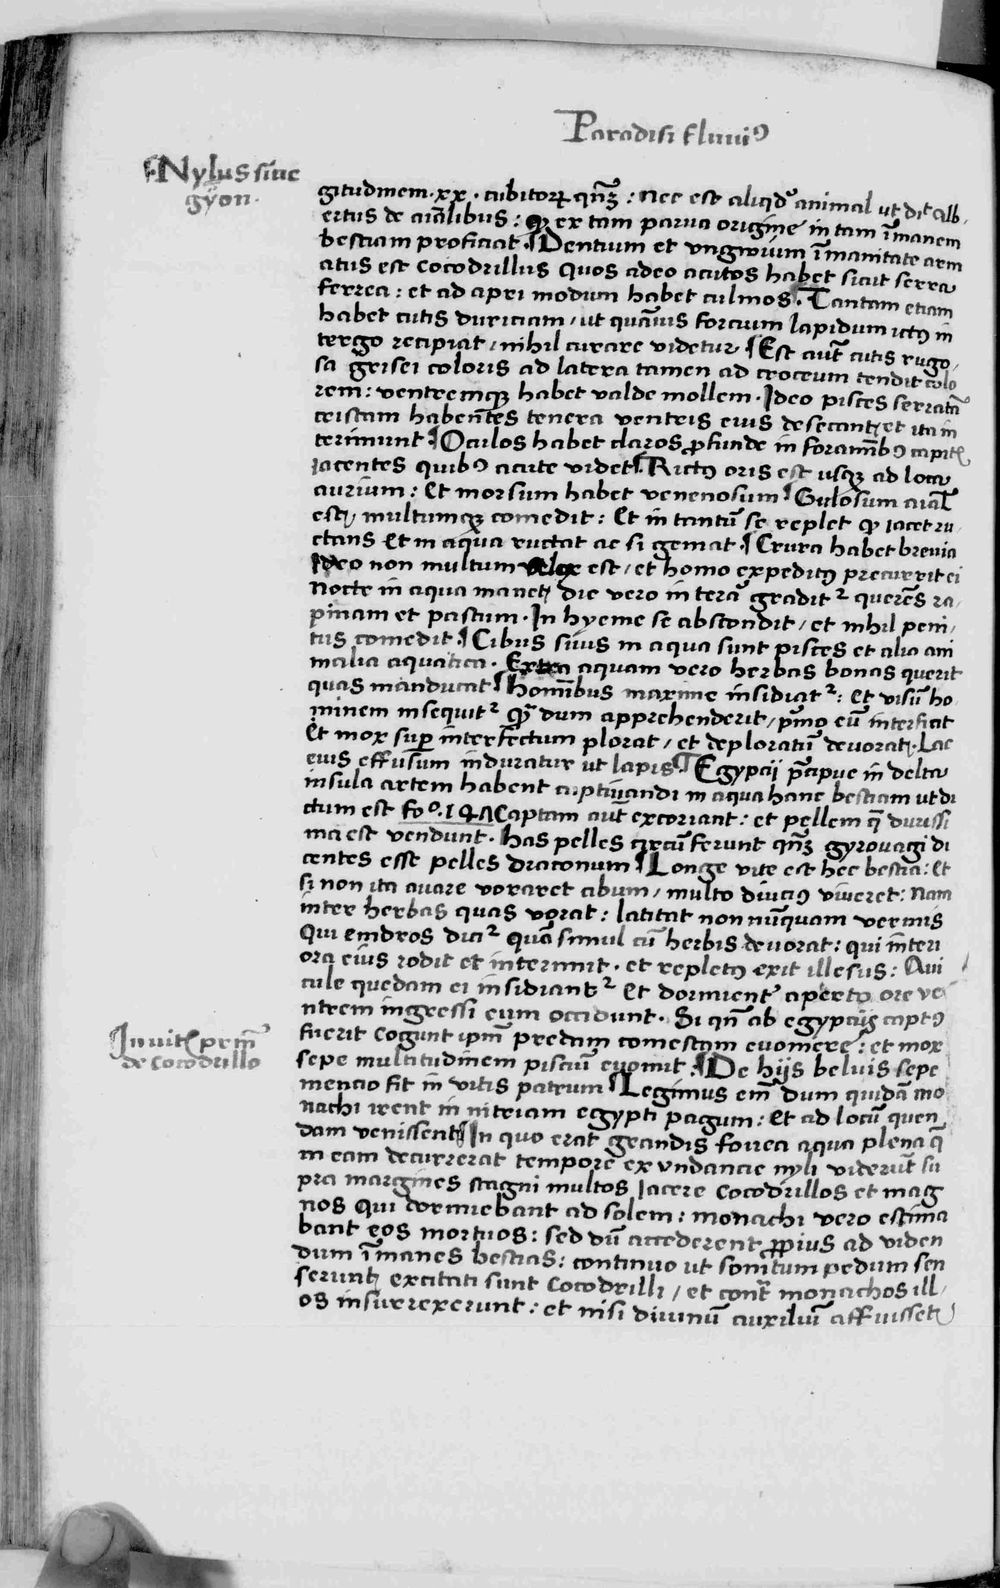 Paradisi fluuiꝰ
Nylus siue
gyon.
gitudinem .xx. cubitoꝝ qnꝫ : nec est aliqd' animal ut dic̄ Alb-
ertus de aı̄alibus : qꝫ ex tam parua origine in tam ı̄manem
bestiam proficiat. ¶Dentium et vngwium ı̄manitate arm
atus est Cocodrillus quos adeo acutos habet sicut serra
ferrea : et ad apri modum habet culmos. Tantam etiam
habet cutis duriciam / ut quāuis forcium lapidum ictꝰ in
tergo recipiat / nihil curare videtur ¶Est aut̄ cutis rugo,
sa grisei coloris ad latera tamen ad croceum tendit colo
rem : ventremqꝫ habet valde mollem. Ideo pisces serratā
cristam haben̄tes tenera ventris eius desecant / et ita in
terimunt ¶Oculos habet claros ꝓfunde in foramı̄bꝰ capitꝭ
iacentes quibꝰ acute videt ¶Rictꝰ oris est usqꝫ ad loca
aurium : et morsum habet venenosum ¶Gulosum aı̄al
est / multumqꝫ comedit : Et in tantū se replet qꝫ iacet ru
ctans et in aqua ructat ac si gemat. ¶Crura habet breuia
Ideo non multum velox est / et homo expeditꝰ precurrit ei
Nocte in aqua manet / die vero in terā gradit² querēs ra,
pinam et pastum. In hyeme se abscondit / et nihil peni,
tus comedit. ¶Cibus suus in aqua sunt pisces et alia ani
malia aquatica. Extra aquam vero herbas bonas querit
quas manducat ¶homı̄bus maxime insidiat² : et visū ho
minem insequit² quē dum apprehenderit / pͥmo eū interficit
Et mox suꝑ interfectum plorat / et deploratū deuorat. Lac
eius effusum induratur ut lapis. ¶Egypcij pͣcipue in delta
insula artem habent captiuandi in aqua hanc bestiam ut di
ctum est fo°. 147 Captam aut̄ excoriant : et pellem q̄ durissi
ma est vendunt. has pelles circū ferunt qnꝫ gyrouagi di
centes esse pelles draconum ¶Longe vite est hec bestia : et
si non ita auare voraret cibum / multo diuciꝰ viueret : Nam
inter herbas quas vorat : latitat non nūquam vermis
Qui emdros dici² quā simul cū herbis deuorat : qui ı̄nteri
ora eius rodit et interimit. et repletꝰ exit illesus : Aui
cule quedam ei insidiant² et dormient² aperto ore ve
ntrem ingressi eum occidunt. Si qn̄ ab egypciis captꝰ
In vitꝭ prm̄
de Cocodrillo
fuerit cogunt ip̄m predam comestam euomere : et mox
sepe multitudinem pisciū euomit. ¶De hijs beluis sepe
mencio fit in vitis patrum ¶Legimus em̄ dum quidā mo
nachi irent in nitriam egypti pagum : et ad locū quen
dam venissent In quo erat grandis fouea aqua plena q̄
in eam decurrerat tempore exvndancie nyli viderūt su
pra margines stagni multos Iacere Cocodrillos et mag
nos qui dormiebant ad solem : monachi vero estima
bant eos mortuos : sed dū accederent ꝓpius ad viden
dum ı̄manes bestias : continuo ut sonitum pedum sen
serunt / excitati sunt Cocodrilli / et cont̄ monachos ill,
os insurrexerunt : et nisi diuinū auxiliū affuisset